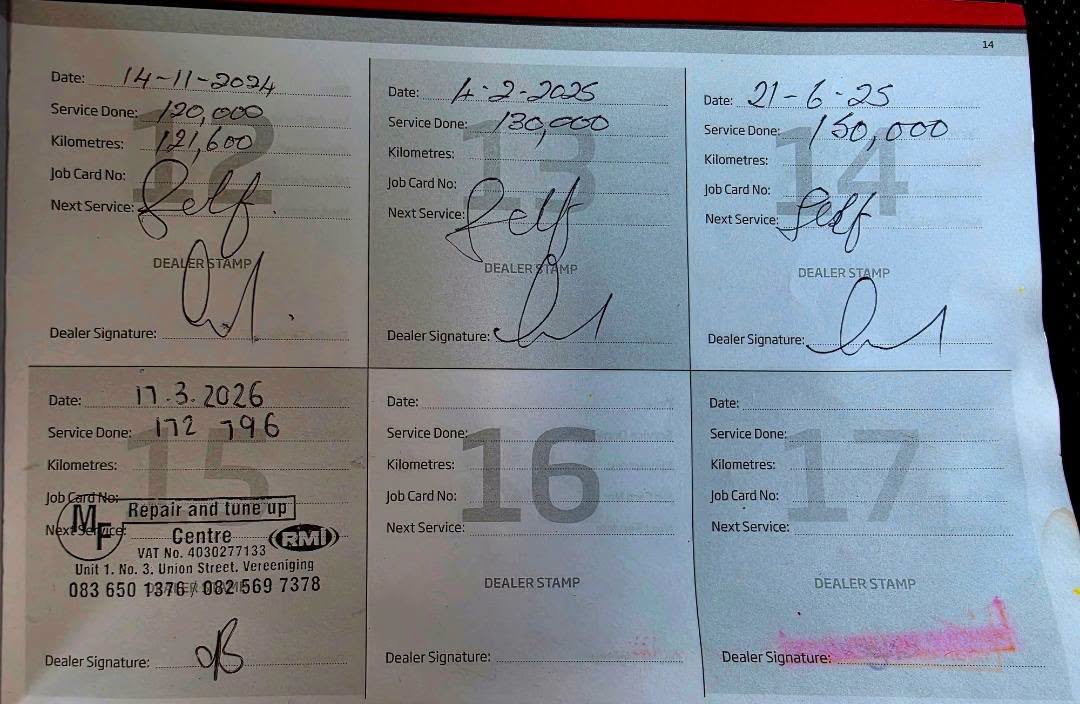 14
Date: 14-11-2024
Service Done: 120,000
Kilometres: 121,600
Job Card No:
Next Service: Self
12
DEALER STAMP
Dealer Signature:
Date: 4-2-2025
Service Done: 130,000
Kilometres:
Job Card No:
Next Service: Self
13
DEALER STAMP
Dealer Signature:
Date: 21-6-25
Service Done: 150,000
Kilometres:
Job Card No:
Next Service: Self
14
DEALER STAMP
Dealer Signature:
Date: 17.3.2026
Service Done: 172 796
Kilometres:
15
Job Card No:
Next Service:
MF
Repair and tune up
Centre
RMI
VAT No. 4030277133
Unit 1. No. 3. Union Street. Vereeniging
083 650 1376 / 082 569 7378
DEALER STAMP
Dealer Signature:
Date:
Service Done:
Kilometres:
Job Card No:
Next Service:
16
DEALER STAMP
Dealer Signature:
Date:
Service Done:
Kilometres:
Job Card No:
Next Service:
17
DEALER STAMP
Dealer Signature: